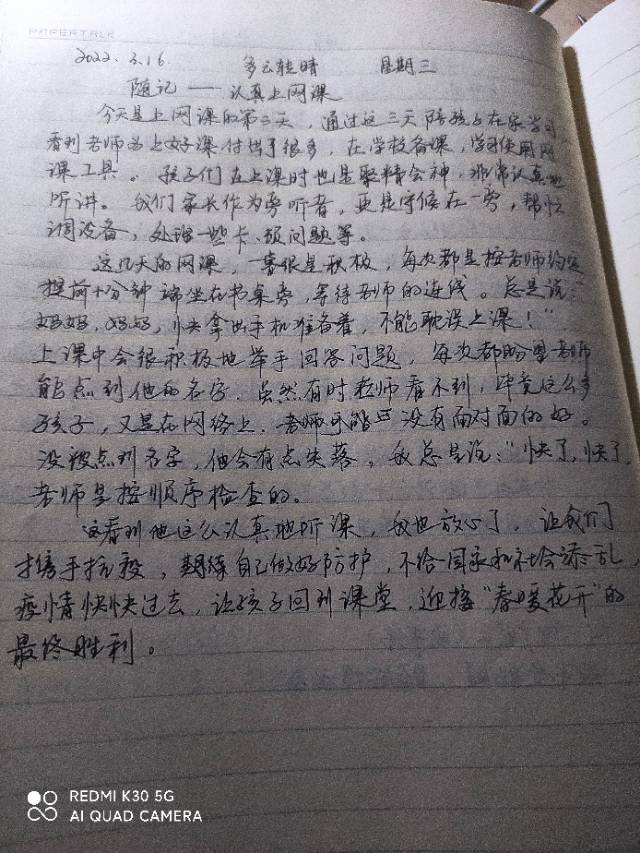 PAPERTALK
2022.3.16 多云转晴 星期三
随记——认真上网课
今天是上网课的第三天，通过这三天陪孩子在家学习，
看到老师为上好课付出了很多，在学校备课，学习使用网
课工具。孩子们在上课时也是聚精会神，非常认真地
听讲。我们家长作为旁听者，更是守候在一旁，帮忙
调设备，处理一些卡、顿问题等。
这几天的网课，一喜很是积极，每次都是按老师约定
提前十分钟端坐在书桌旁，等待老师的连线。总是说："
妈妈，妈妈，快拿出手机准备着，不能耽误上课！"
上课中会很积极地举手回答问题，每次都盼望老师
能点到他的名字。虽然有时老师看不到，毕竟这么多
孩子，又是在网络上，老师 没有面对面的好。
没被点到名字，他会有点失落，我总是说："快了，快了，
老师是按顺序检查的。
看到他这么认真地听课，我也放心了，让我们
携手抗疫，继续自己做好防护，不给国家和社会添乱，
疫情快快过去，让孩子回到课堂，迎接"春暖花开"的
最终胜利。
REDMI K30 5G
AI QUAD CAMERA